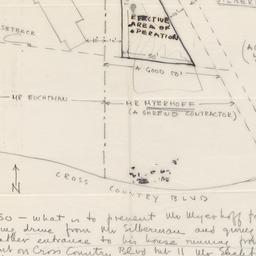 SETBACK
EFFECTIVE
AREA OF
OPERATION
60'
A GOOD 50'
MR BUCHMAN
MR MYERHOFF
(A SHREWD CONTRACTOR)
N
CROSS COUNTRY BLVD
SO — what is to prevent Mr Myerhoff f
drive from Mr Silberman and
entrance to his house running from
on Cross Country Blvd but 11 Mr